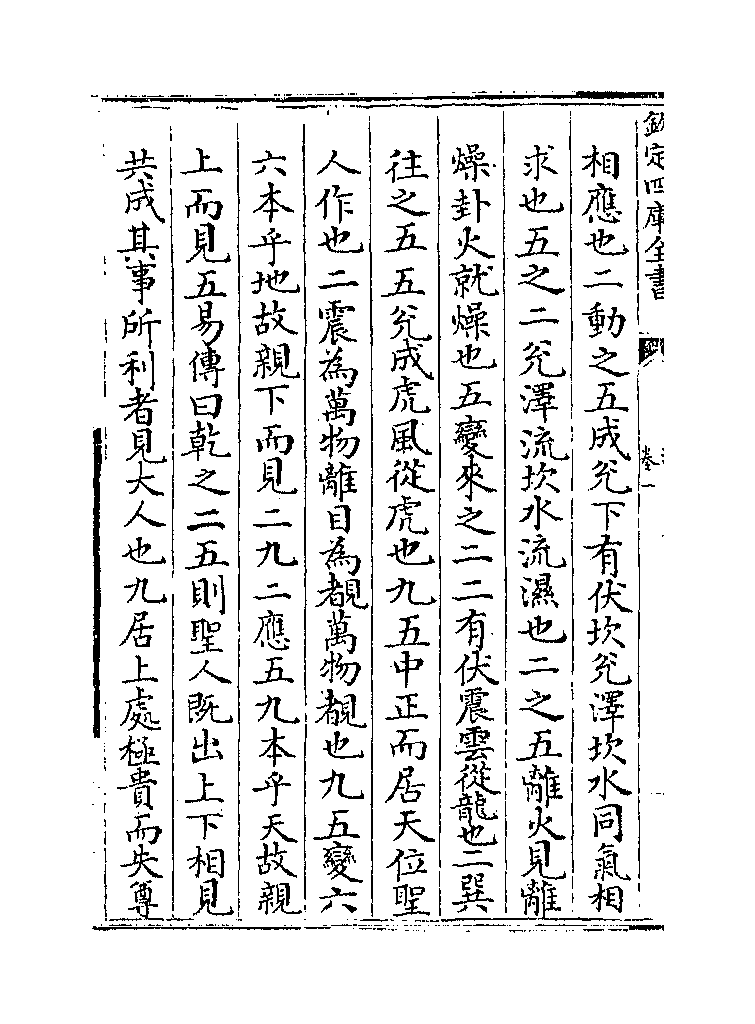 欽定四庫全書
卷一
相應也二動之五成兊下有伏坎兊澤坎水同氣相
求也五之二兊澤流坎水流濕也二之五離火見離
燥卦火就燥也五變來之二二有伏震雲從龍也二巽
往之五五兊成虎風從虎也九五中正而居天位聖
人作也二震為萬物離目為覩萬物覩也九五變六
六本乎地故親下而見二九二應五九本乎天故親
上而見五易傳曰乾之二五則聖人既出上下相見
共成其事所利者見大人也九居上處極貴而失尊